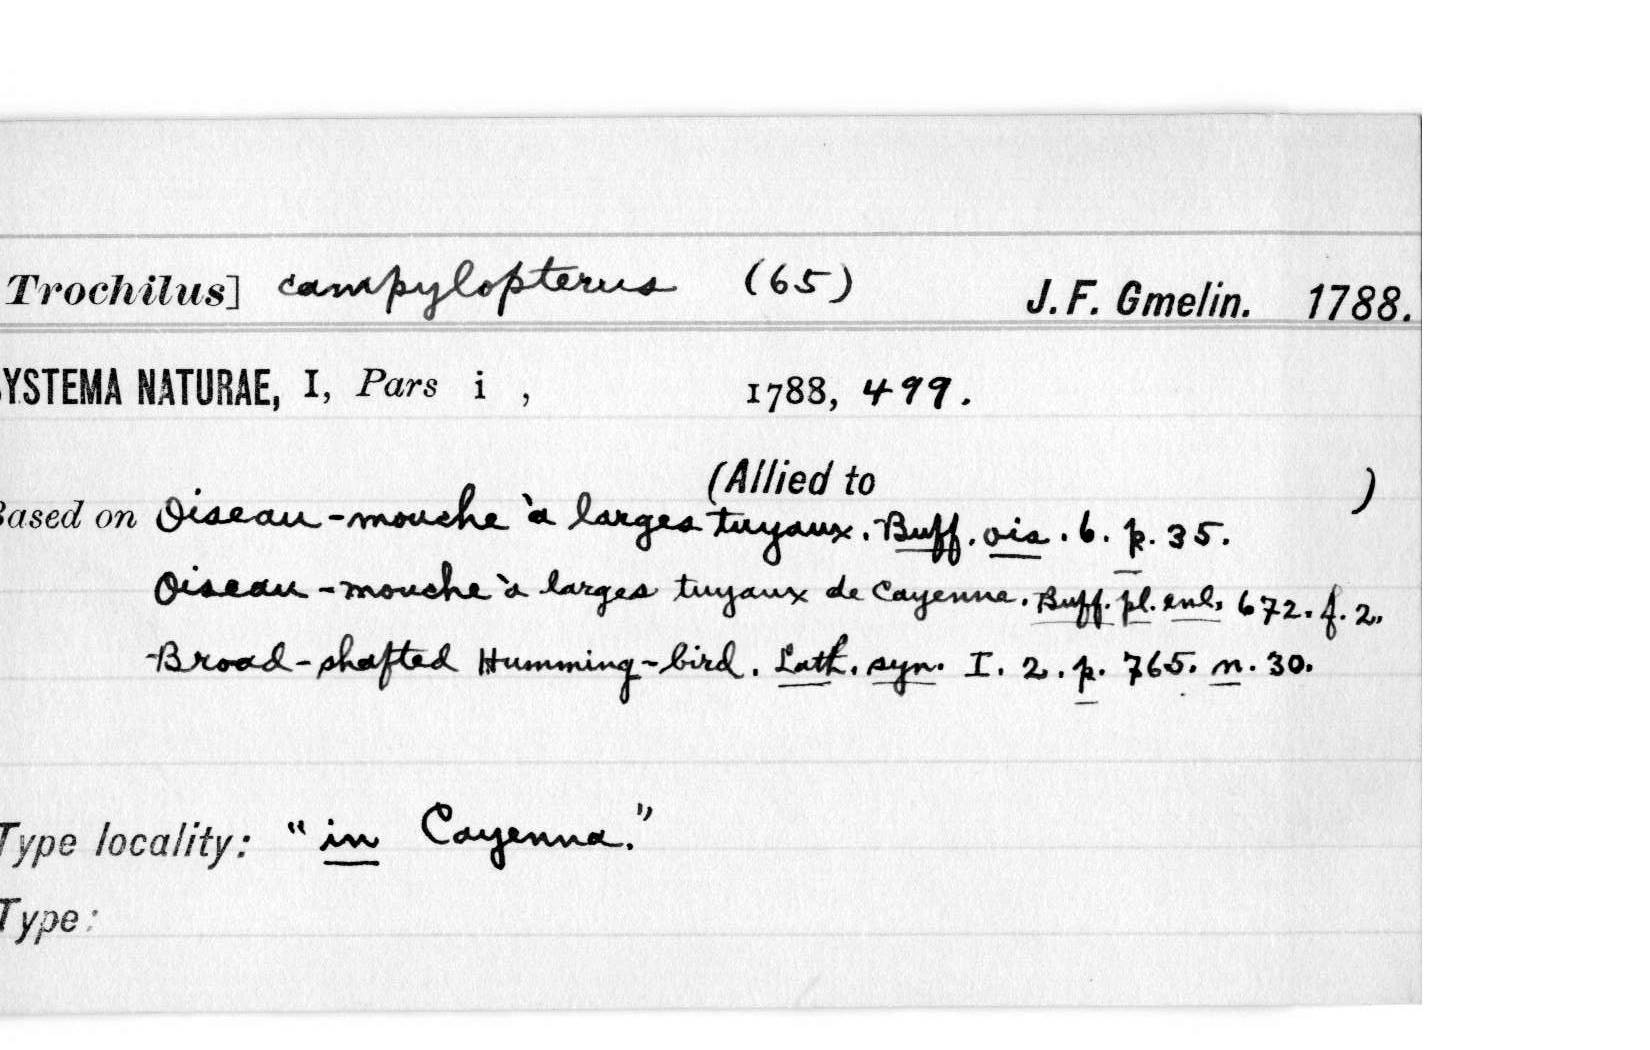 Trochilus] campylopterus (65) J. F. Gmelin. 1788.
YSTEMA NATURAE, I, Pars i , 1788, 499.
(Allied to )
Based on Oiseau-mouche à larges tuyaux. Buff. ois. 6. p. 35.
Oiseau-mouche à larges tuyaux de Cayenne. Buff. pl. enl. 672. f. 2.
Broad-shafted Humming-bird. Lath. syn. I. 2. p. 765. n. 30.
Type locality: "in Cayenna."
Type: